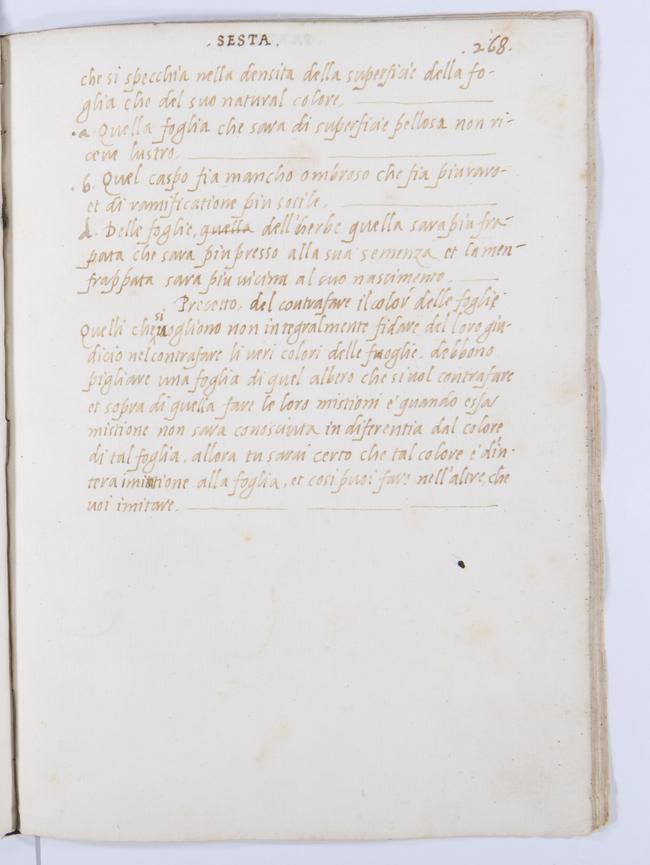 . SESTA .
. 268 .
che si specchia nella densita della superficie della fo-
glia che del suo natural colore.
. a. Quella foglia che sara di superficie pellosa non ri-
ceve lustro.
. b. Quel caspo fia mancho ombroso che fia piu raro
et di ramificatione piu sotile.
d. Delle foglie, quella dell'herbe quella sara piu fra-
pata che sara piu presso alla sua semenza et la men
frappata sara piu vicina al suo nascimento.
Precetto, del contrafare il color delle foglie
Quelli che si vogliono non integralmente fidare del loro giu-
dicio nel contrafare li veri colori delle fuoglie. debbono
pigliare una foglia di quel albero che si vol contrafare
et sopra di quella fare le loro mistioni e quando essa
mistione non sara conosciuta in diferentia dal colore
di tal foglia, allora tu sarai certo che tal colore e d'in-
tera imitatione alla foglia, et cosi puoi fare nell'altre, che
voi imitare.